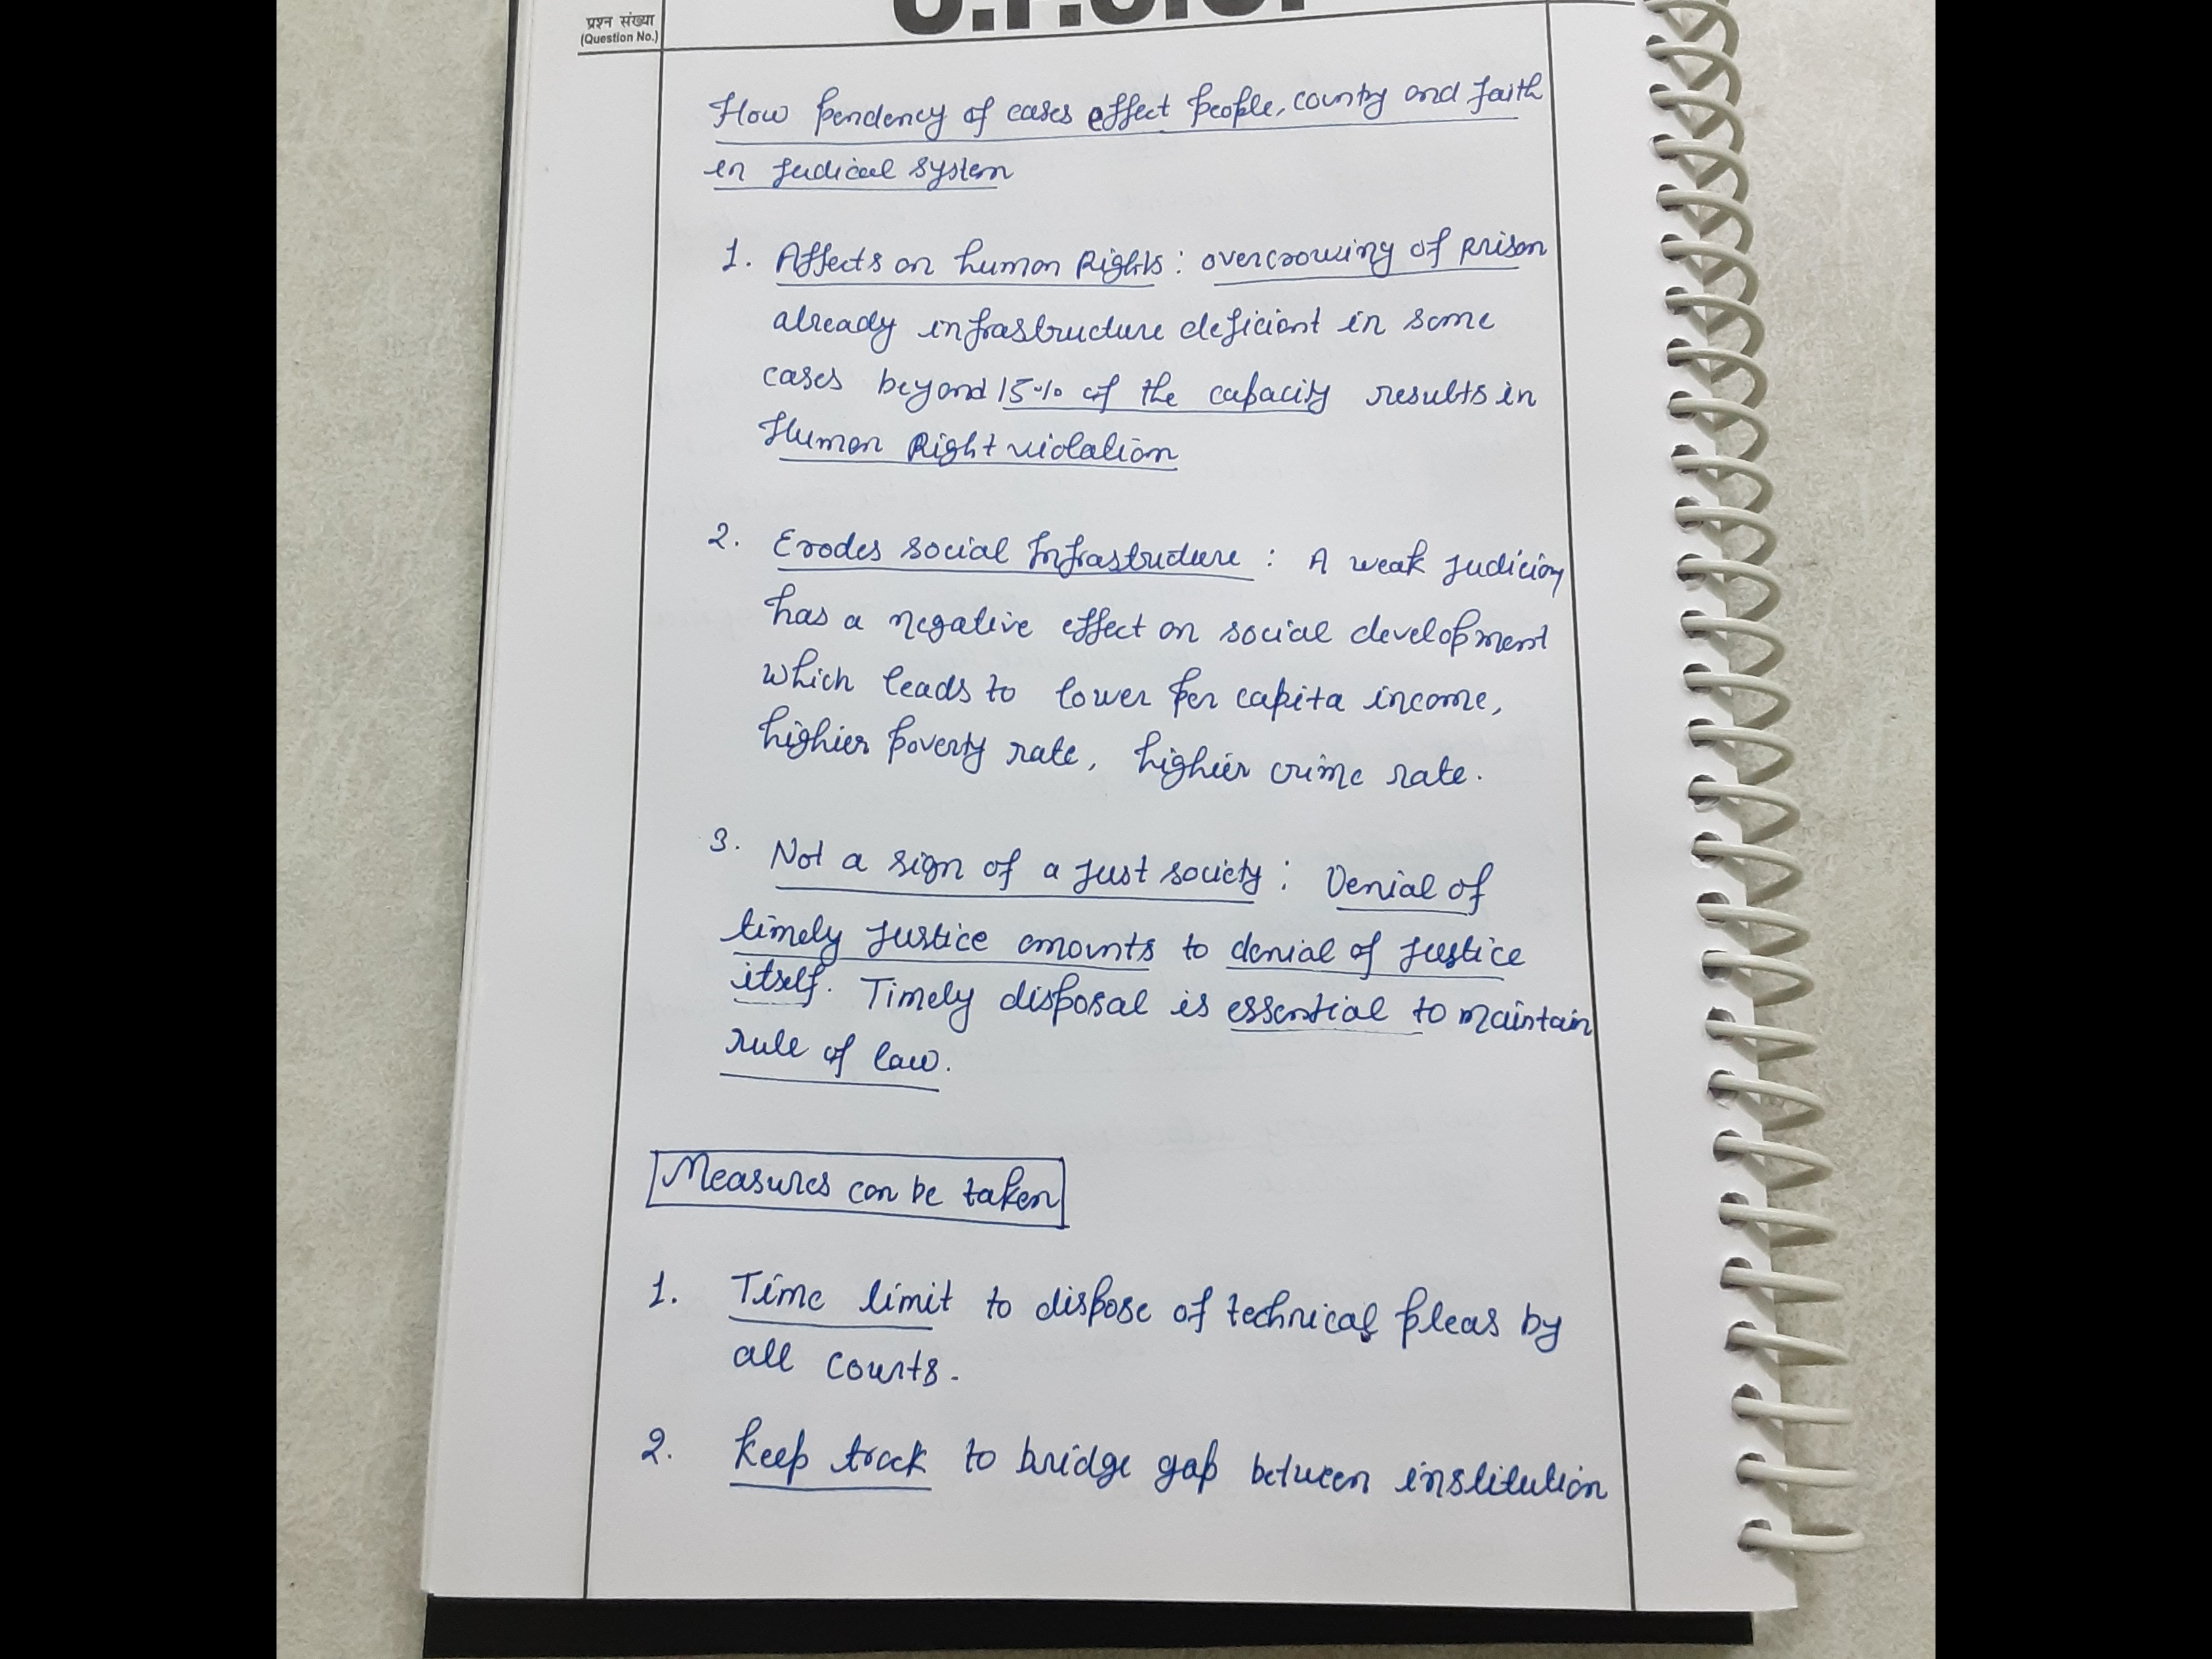 U.P.S.C.
प्रश्न संख्या
(Question No.)
How pendency of cases effect people, county and faith
in judical system
1. Affects on human Rights : overcrowing of prison
already infrastructure deficient in some
cases beyond 15% of the capacity results in
Human Right violation
2. Erodes social Infrastructure : A weak judiciary
has a negative effect on social development
which leads to lower per capita income,
highier poverty rate, highier crime rate.
3. Not a sign of a just society : Denial of
timely justice amounts to denial of justice
itself. Timely disposal is essential to maintain
rule of law.
Measures can be taken
1. Time limit to dispose of technical pleas by
all courts.
2. keep track to bridge gap between institution